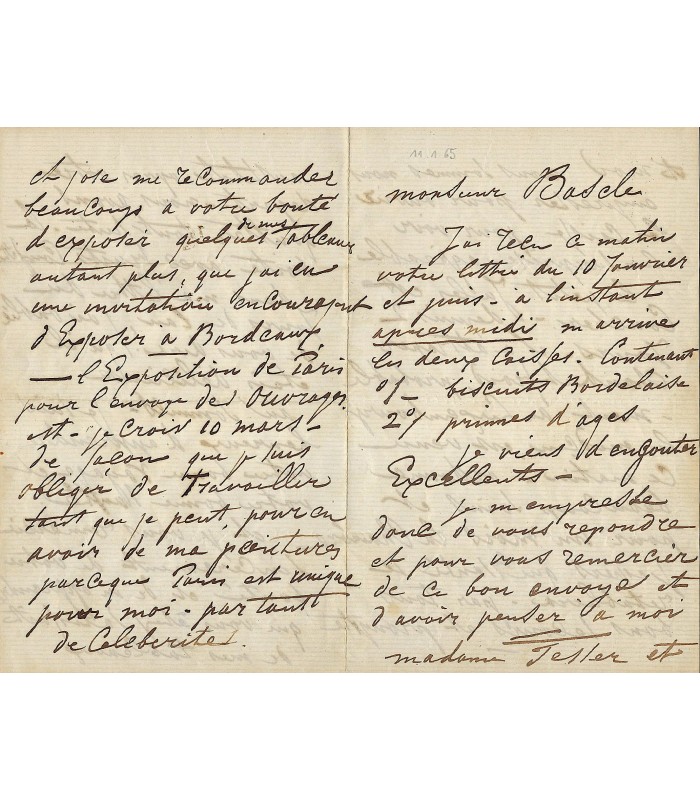 11.1.65
monsieur Bascle
J'ai recu ce matin
votre lettre du 10 Janvier
et puis - à l'instant
apres midi m arrive
les deux Caisses. Contenant
1º/ - biscuits Bordelaise
2º/ primes d'ages
je viens d'en gouter
Excellents -
je m'empresse
donc de vous repondre
et pour vous remercier
de ce bon envoye et
d'avoir penser à moi
madame et
et j'ose me recommander
beaucoup a votre bonté
d'exposer quelques de mes Tableaux
autant plus, que j'ai eu
une invitation encouragent
d'Exposer à Bordeaux
— l'Exposition de Paris
pour l'envoye des Ouvrages.
est - je crois 10 mars -
de façon que je suis
obliger de Travailler
tant que je peut, pour en
avoir de ma peintures
parceque Paris est unique
pour moi - par tant
de Celeberite.